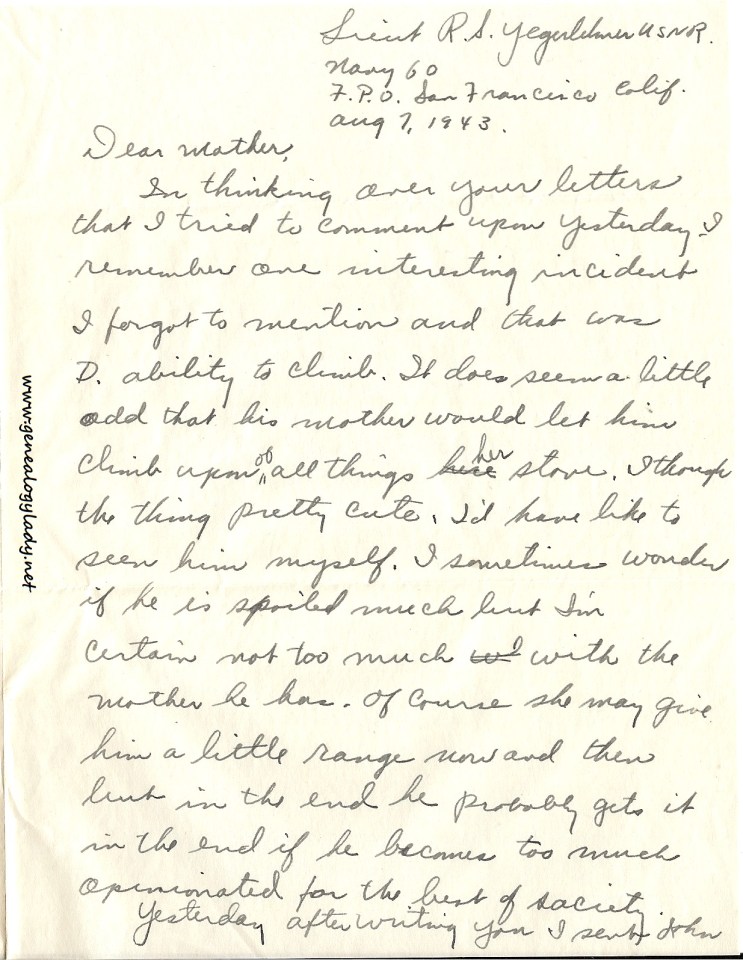 Lieut R. S. Yegerlehner USNR.
Navy 60
F.P.O. San Francisco Calif.
Aug 7, 1943.
Dear Mother,
In thinking over your letters
that I tried to comment upon yesterday I
remember one interesting incident
I forgot to mention and that was
D. ability to climb. It does seem a little
odd that his mother would let him
climb upon of all things her stove. I though
the thing pretty cute. I'd have like to
seen him myself. I sometimes wonder
if he is spoiled much but I'm
certain not too much with the
mother he has. Of course she may give
him a little range now and then
but in the end he probably gets it
in the end if he becomes too much
opinionated for the best of society.
Yesterday after writing you I sent John
www.genealogylady.net